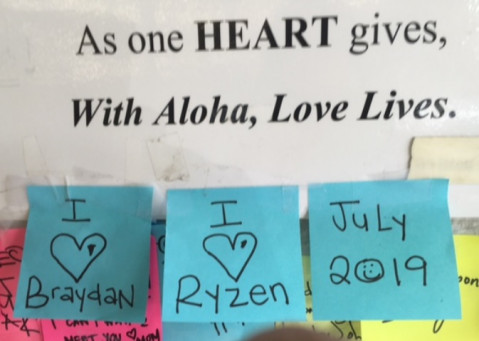 As one HEART gives,
With Aloha, Love Lives.
I
Braydan
I
Ryzen
July
2019
MEET YOU MOM